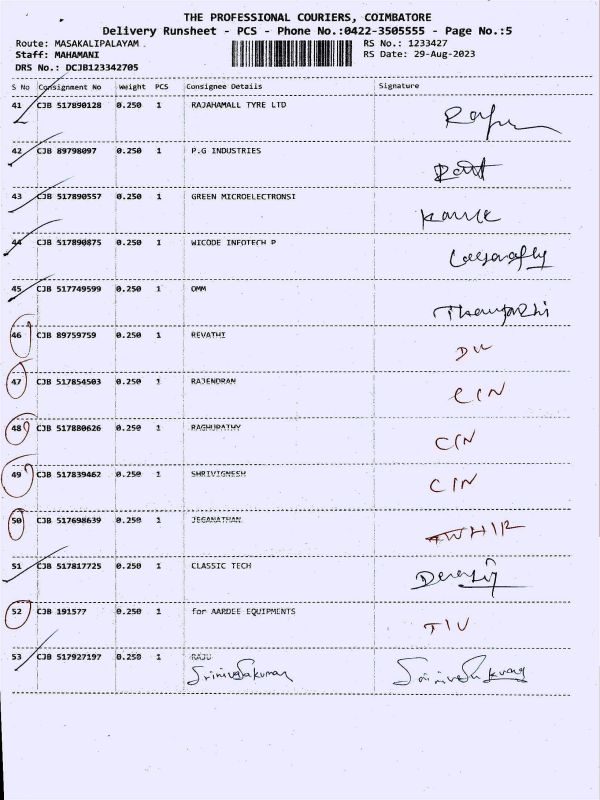 THE PROFESSIONAL COURIERS, COIMBATORE
Delivery Runsheet - PCS - Phone No.:0422-3505555 - Page No.:5
Route: MASAKALIPALAYAM .
RS No.: 1233427
Staff: MAHAMANI
RS Date: 29-Aug-2023
DRS No.: DCJB123342705
S No Consignment No Weight PCS Consignee Details Signature
41 CJB 517890128 0.250 1 RAJAHAMALL TYRE LTD
42 CJB 89798097 0.250 1 P.G INDUSTRIES
43 CJB 517890557 0.250 1 GREEN MICROELECTRONSI
44 CJB 517890875 0.250 1 WICODE INFOTECH P
45 CJB 517749599 0.250 1 OMM
46 CJB 89759759 0.250 1 REVATHI
47 CJB 517854503 0.250 1 RAJENDRAN CIN
48 CJB 517880626 0.250 1 RAGHUPATHY CIN
49 CJB 517839462 0.250 1 SHRIVIGNESH CIN
50 CJB 517698639 0.250 1 JEGANATHAN
51 CJB 517817725 0.250 1 CLASSIC TECH
52 CJB 191577 0.250 1 for AARDEE EQUIPMENTS TIV
53 CJB 517927197 0.250 1 RAJU
Srinivasakumar